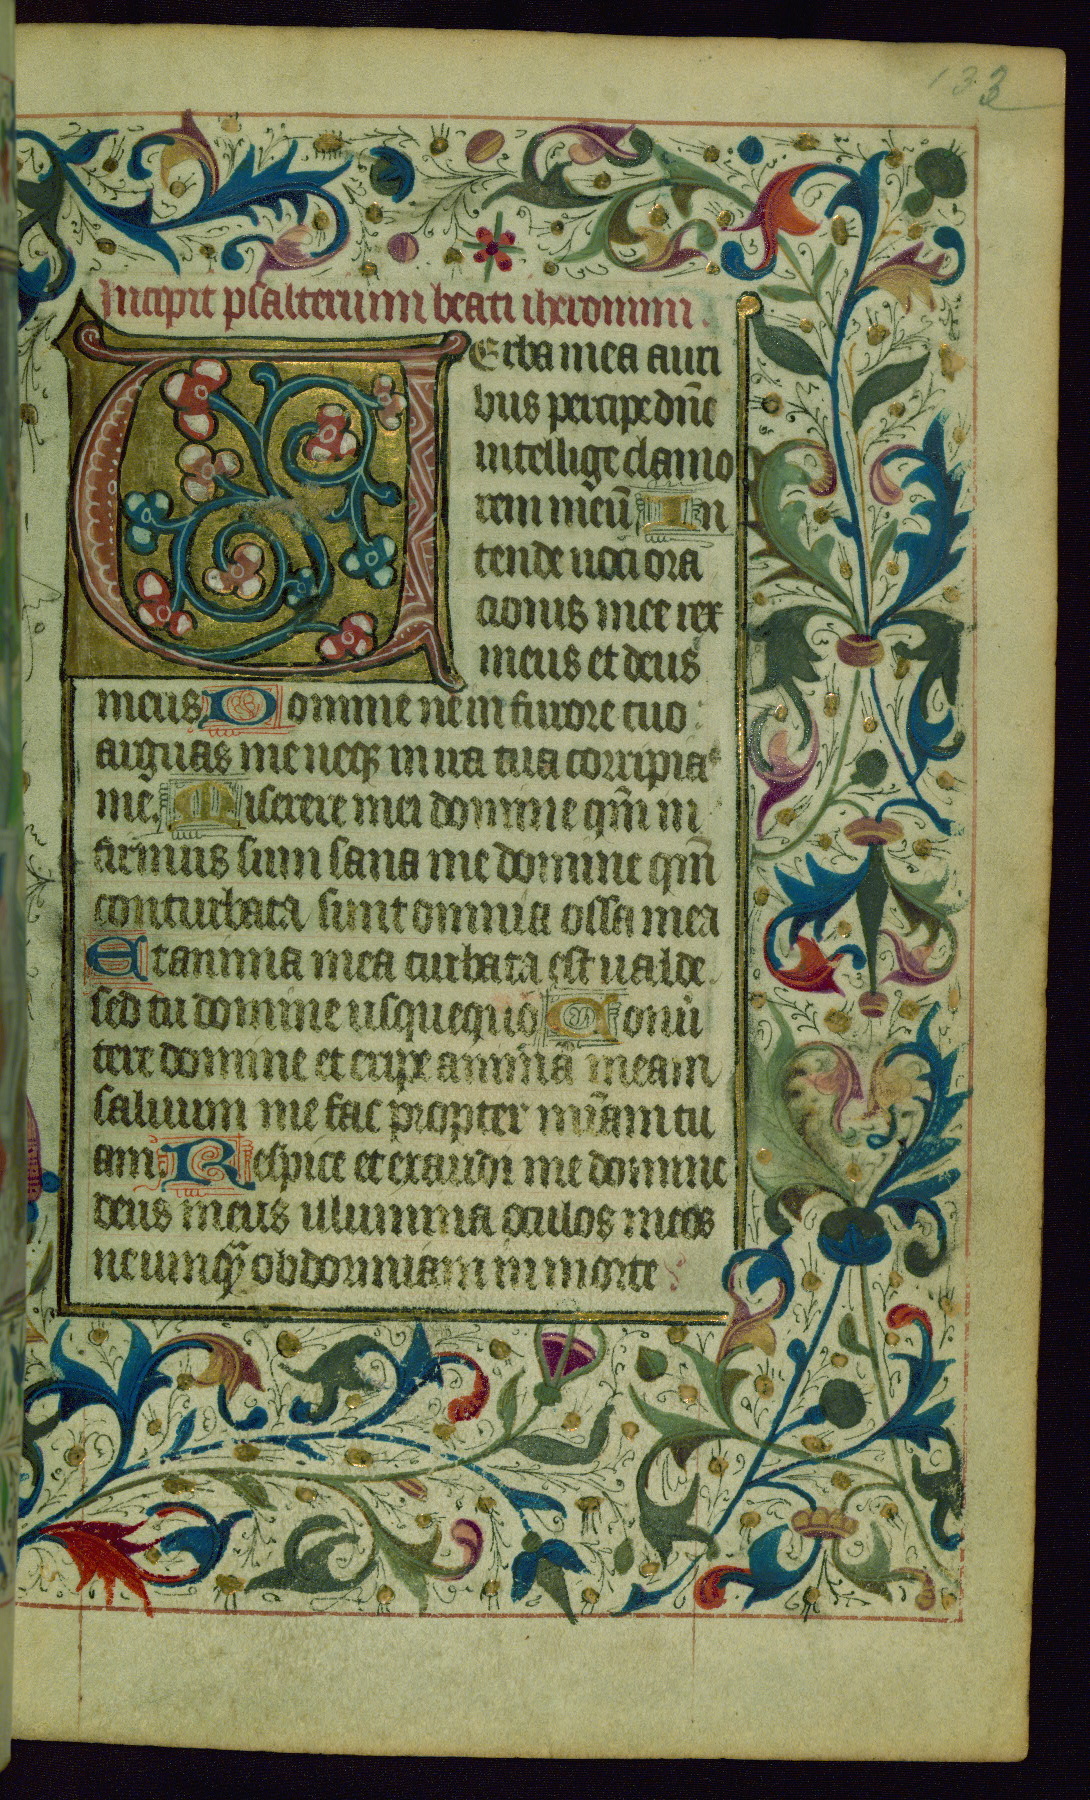 133
Incipit psalterium beati iheronimi.
Verba mea auri
bus percipe dn̄e
intellige clamo
rem meū In
tende uoci ora
cionis mee rex
meus et deus
meus Domine ne in furore tuo
arguas me neqꝫ in ira tua corripias
me. Miserere mei domine qm̄ in
firmus sum sana me domine qm̄
conturbata sunt omnia ossa mea
Et anima mea turbata est ualde.
sed tu domine usquequo Conu
tere domine et eripe animā meam
saluum me fac propter mīam tu
am. Respice et exaudi me domine
deus meus illumina oculos meos
ne umqꝫ obdormiam in morte